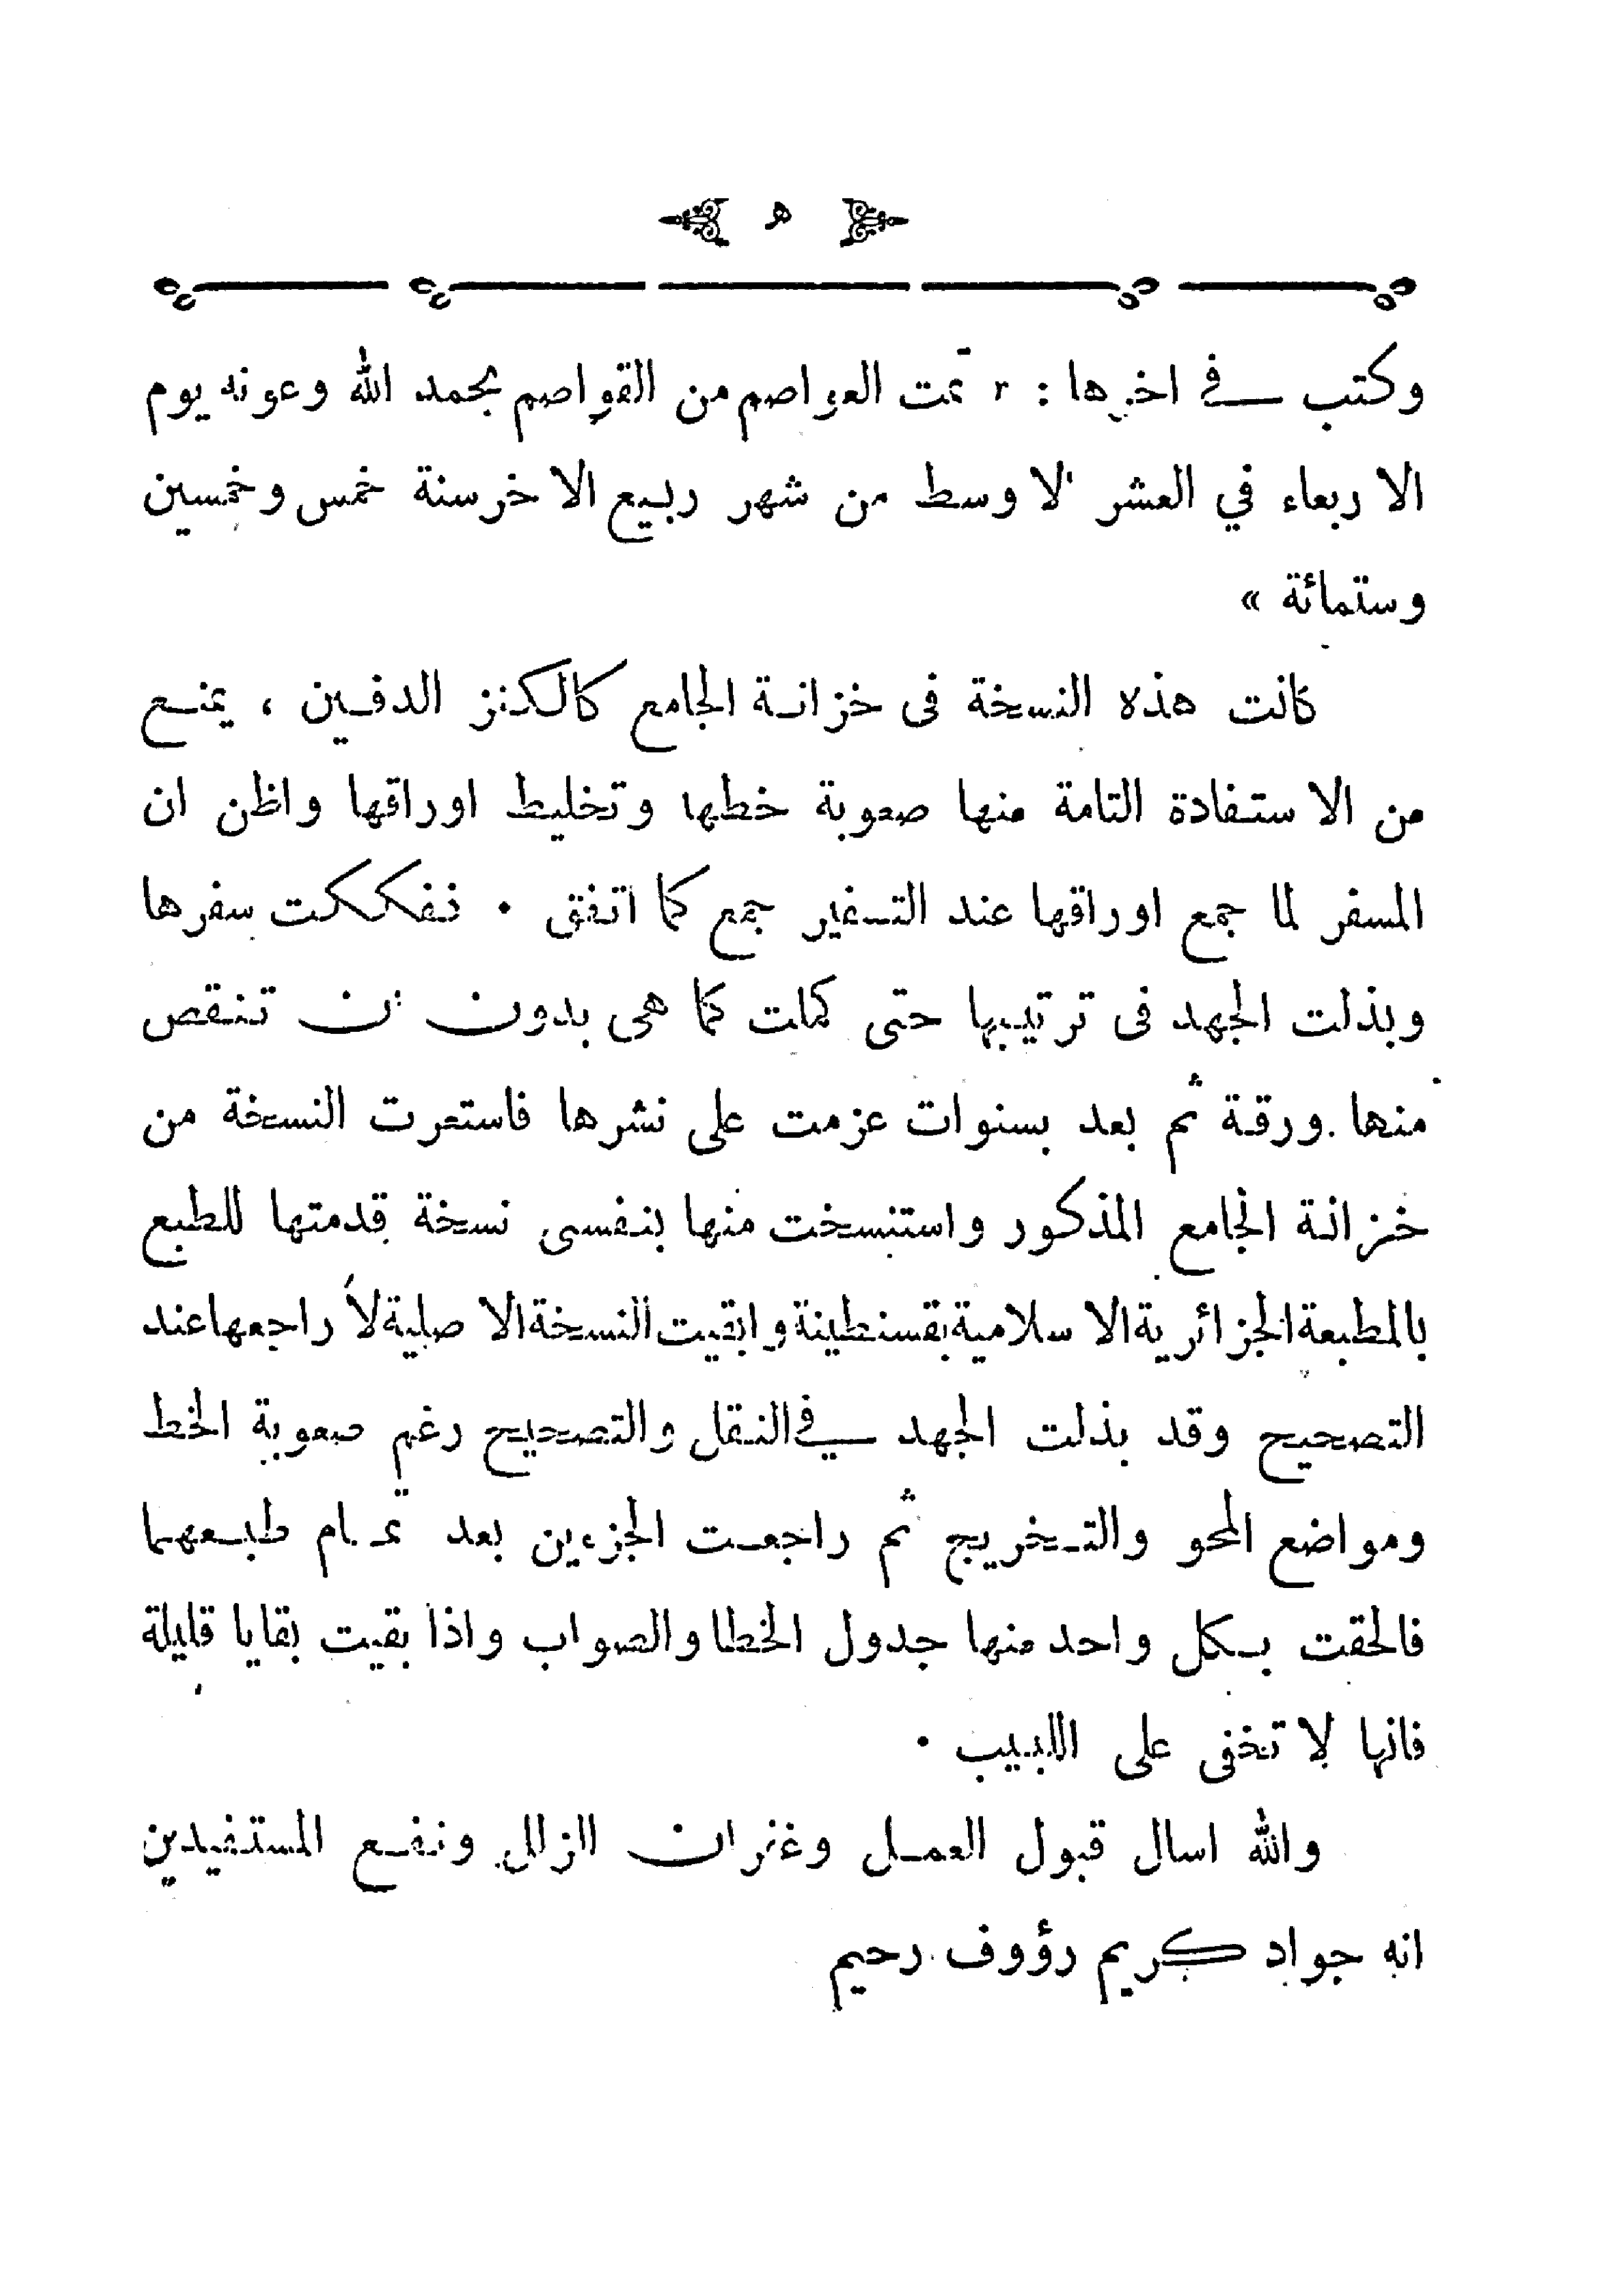 ه
وكتب في اخرها : « تمت العواصم من القواصم بحمد الله وعونه يوم
الاربعاء في العشر الاوسط من شهر ربيع الاخر سنة خمس وخمسين
وستمائة »
كانت هذه النسخة فى خزانة الجامع كالكنز الدفين ، يمنع
من الاستفادة التامة منها صعوبة خطها وتخليط اوراقها واظن ان
المسفر لما جمع اوراقها عند التسفير جمع كما اتفق . ففككت سفرها
وبذلت الجهد فى ترتيبها حتى كملت كما هى بدون ان تنقص
منها ورقة ثم بعد بسنوات عزمت على نشرها فاستعرت النسخة من
خزانة الجامع المذكور واستنسخت منها بنفسى نسخة قدمتها للطبع
بالمطبعة الجزائرية الاسلامية بقسنطينة وابقيت النسخة الاصلية لأراجعها عند
التصحيح وقد بذلت الجهد في النقل والتصحيح رغم صعوبة الخط
ومواضع المحو والتخريج ثم راجعت الجزءين بعد تمام طبعهما
فالحقت بكل واحد منها جدول الخطا والصواب واذا بقيت بقايا قليلة
فانها لا تخفى على اللبيب .
والله اسال قبول العمل وغفران الزلل ونفع المستفيدين
انه جواد كريم رؤوف رحيم